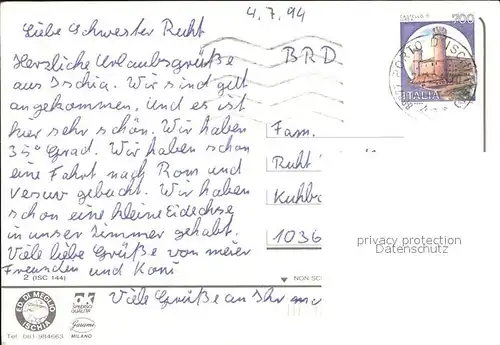 4.7.94
Liebe Schwester Ruht
BRD
700
ITALIA
Herzliche Urlaubsgrüße
aus Ischia. Wir sind gut
angekommen. Und es ist
hier sehr schön. Wir haben
35° Grad. Wir haben schon
eine Fahrt nach Rom und
Vesuv gebucht. Wir haben
schon eine kleine Eidechse
in unser Zimmer gehabt.
Viele liebe Grüße von meier
Freunden und Koni
Fam.
Ruht
Kuhb
1036
privacy protection
Datenschutz
2 (ISC 144)
NON SC
Viele Grüße an Ihr
ED. DI MEGLIO
ISCHIA
Tel. 081-984663
Garami
MILANO